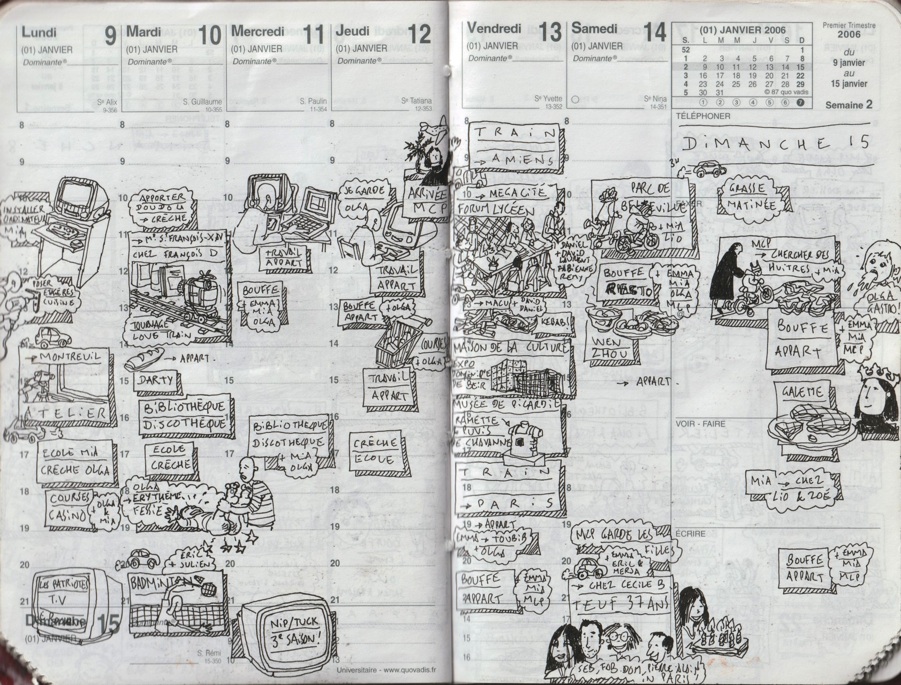 Lundi 9
(01) JANVIER
Dominante®
Sᵉ Alix
9-356
8
9
10
INSTALLER
ORDINATEUR
MIA
11
12
POSER
ETAGERES
CUISINE
13
→ MONTREUIL
ATELIER
17
ECOLE MIA
CRÈCHE OLGA
18
COURSES
CASINO
+ OLGA
+ MIA
19
20
LES PATRIOTES
T.V
21
Dimanche 15
(01) JANVIER
S. Rémi
15-350
Mardi 10
(01) JANVIER
Dominante®
S. Guillaume
10-355
8
9
APPORTER
DOUDOU
→ CRÈCHE
→ Mº S! FRANÇOIS-XAV
CHEZ FRANÇOIS D
TOURNAGE
LOVE TRAIN
→ APPART.
15
DARTY
BIBLIOTHÈQUE
DISCOTHÈQUE
16
17
ECOLE
CRÈCHE
18
OLGA
ERYTHÈME
FESSIER
19
20
ERIC
+ JULIEN
BADMINTON
21
Mercredi 11
(01) JANVIER
Dominante®
S. Paulin
11-354
8
9
10
TRAVAIL
APPART
BOUFFE
+ EMMA
MIA
OLGA
15
BIBLIOTHÈQUE
DISCOTHÈQUE
+ MIA
OLGA
17
18
19
20
21
NIP/TUCK
3ᵉ SAISON!
Jeudi 12
(01) JANVIER
Dominante®
Sᵉ Tatiana
12-353
8
9
ARRIVÉE
MCP
JE GARDE
OLGA
TRAVAIL
APPART
BOUFFE
APPART
+ OLGA
COURSES
+ OLGA
TRAVAIL
APPART
CRÈCHE
ECOLE
18
19
20
21
Universitaire - www.quovadis.fr
Vendredi 13
(01) JANVIER
Dominante®
Sᵉ Yvette
13-352
8
TRAIN
→ AMIENS
→ MEGACITÉ
FORUM LYCÉEN
DANIEL
DAVID
FABIENNE
REMY
→ MACU
+ DAVID
DANIEL
KEBAB!
MAISON DE LA CULTURE
EXPO
MUSÉE DE PICARDIE
RAMETTE
+ PUVIS
DE CHAVANNE
TRAIN
→ PARIS
19
→ APPART
EMMA → TOUBIB
+ OLGA
20
BOUFFE
APPART
EMMA
MIA
MCP
Samedi 14
(01) JANVIER
Dominante®
Sᵉ Nina
14-351
8
9
10
PARC DE
BELLEVILLE
+ MIA
LIO
BOUFFE
RESTO
+ EMMA
MIA
OLGA
MIA
WEN
ZHOU
→ APPART.
MCP GARDE LES
FILLES
+ EMMA
ERIC &
→ CHEZ CECILE B
TEUF 37 ANS
SEB, FOB, DOM, PIERRE ALAIN
IN PARIS!!
(01) JANVIER 2006
S. L M M J V S D
52 1
1 2 3 4 5 6 7 8
2 9 10 11 12 13 14 15
3 16 17 18 19 20 21 22
4 23 24 25 26 27 28 29
5 30 31 © 87 quo vadis
① ② ③ ④ ⑤ ⑥ ❼
Premier Trimestre
2006
du
9 janvier
au
15 janvier
Semaine 2
TÉLÉPHONER
DIMANCHE 15
GRASSE
MATINÉE
MCP
→ CHERCHER DES
HUÎTRES
+ MIA
OLGA
GASTRO!
BOUFFE
APPART
+ EMMA
MIA
MCP
GALETTE
VOIR - FAIRE
MIA → CHEZ
LIO & ZOÉ
ÉCRIRE
BOUFFE
APPART
+ EMMA
MIA
MCP